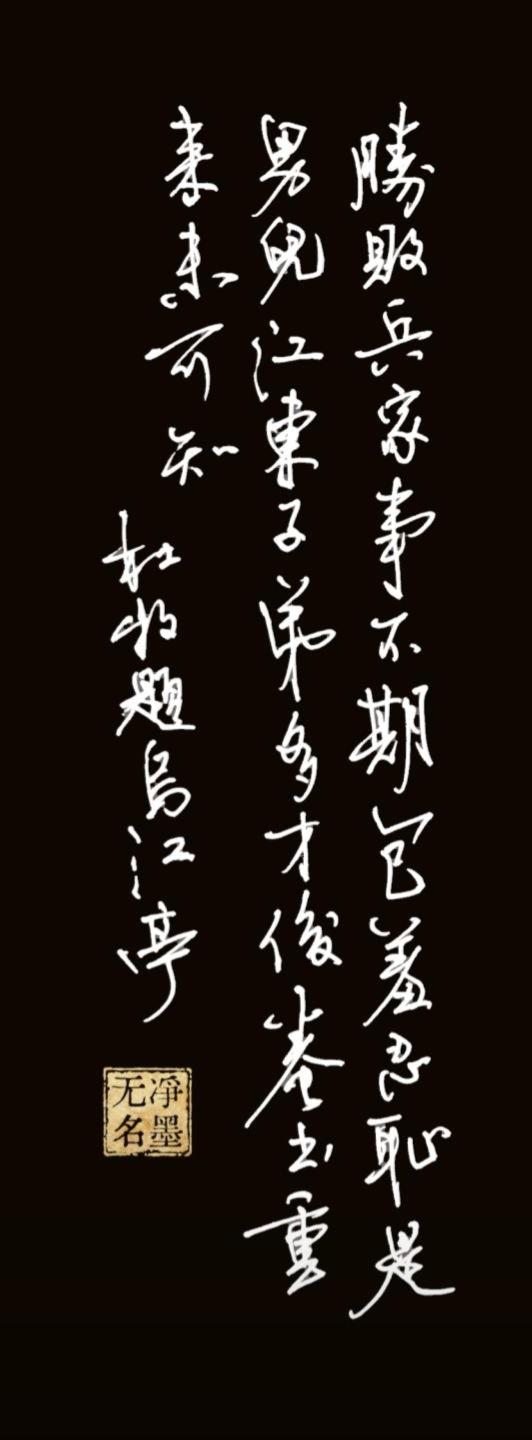 勝敗兵家事不期包羞忍恥是
男兒江東子弟多才俊卷土重
来未可知
杜牧題烏江亭
凈墨
无名